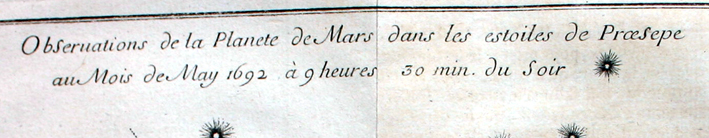 Obseruations de la Planete de Mars dans les estoiles de Præsepe
au Mois de May 1692 à 9 heures 30 min. du soir